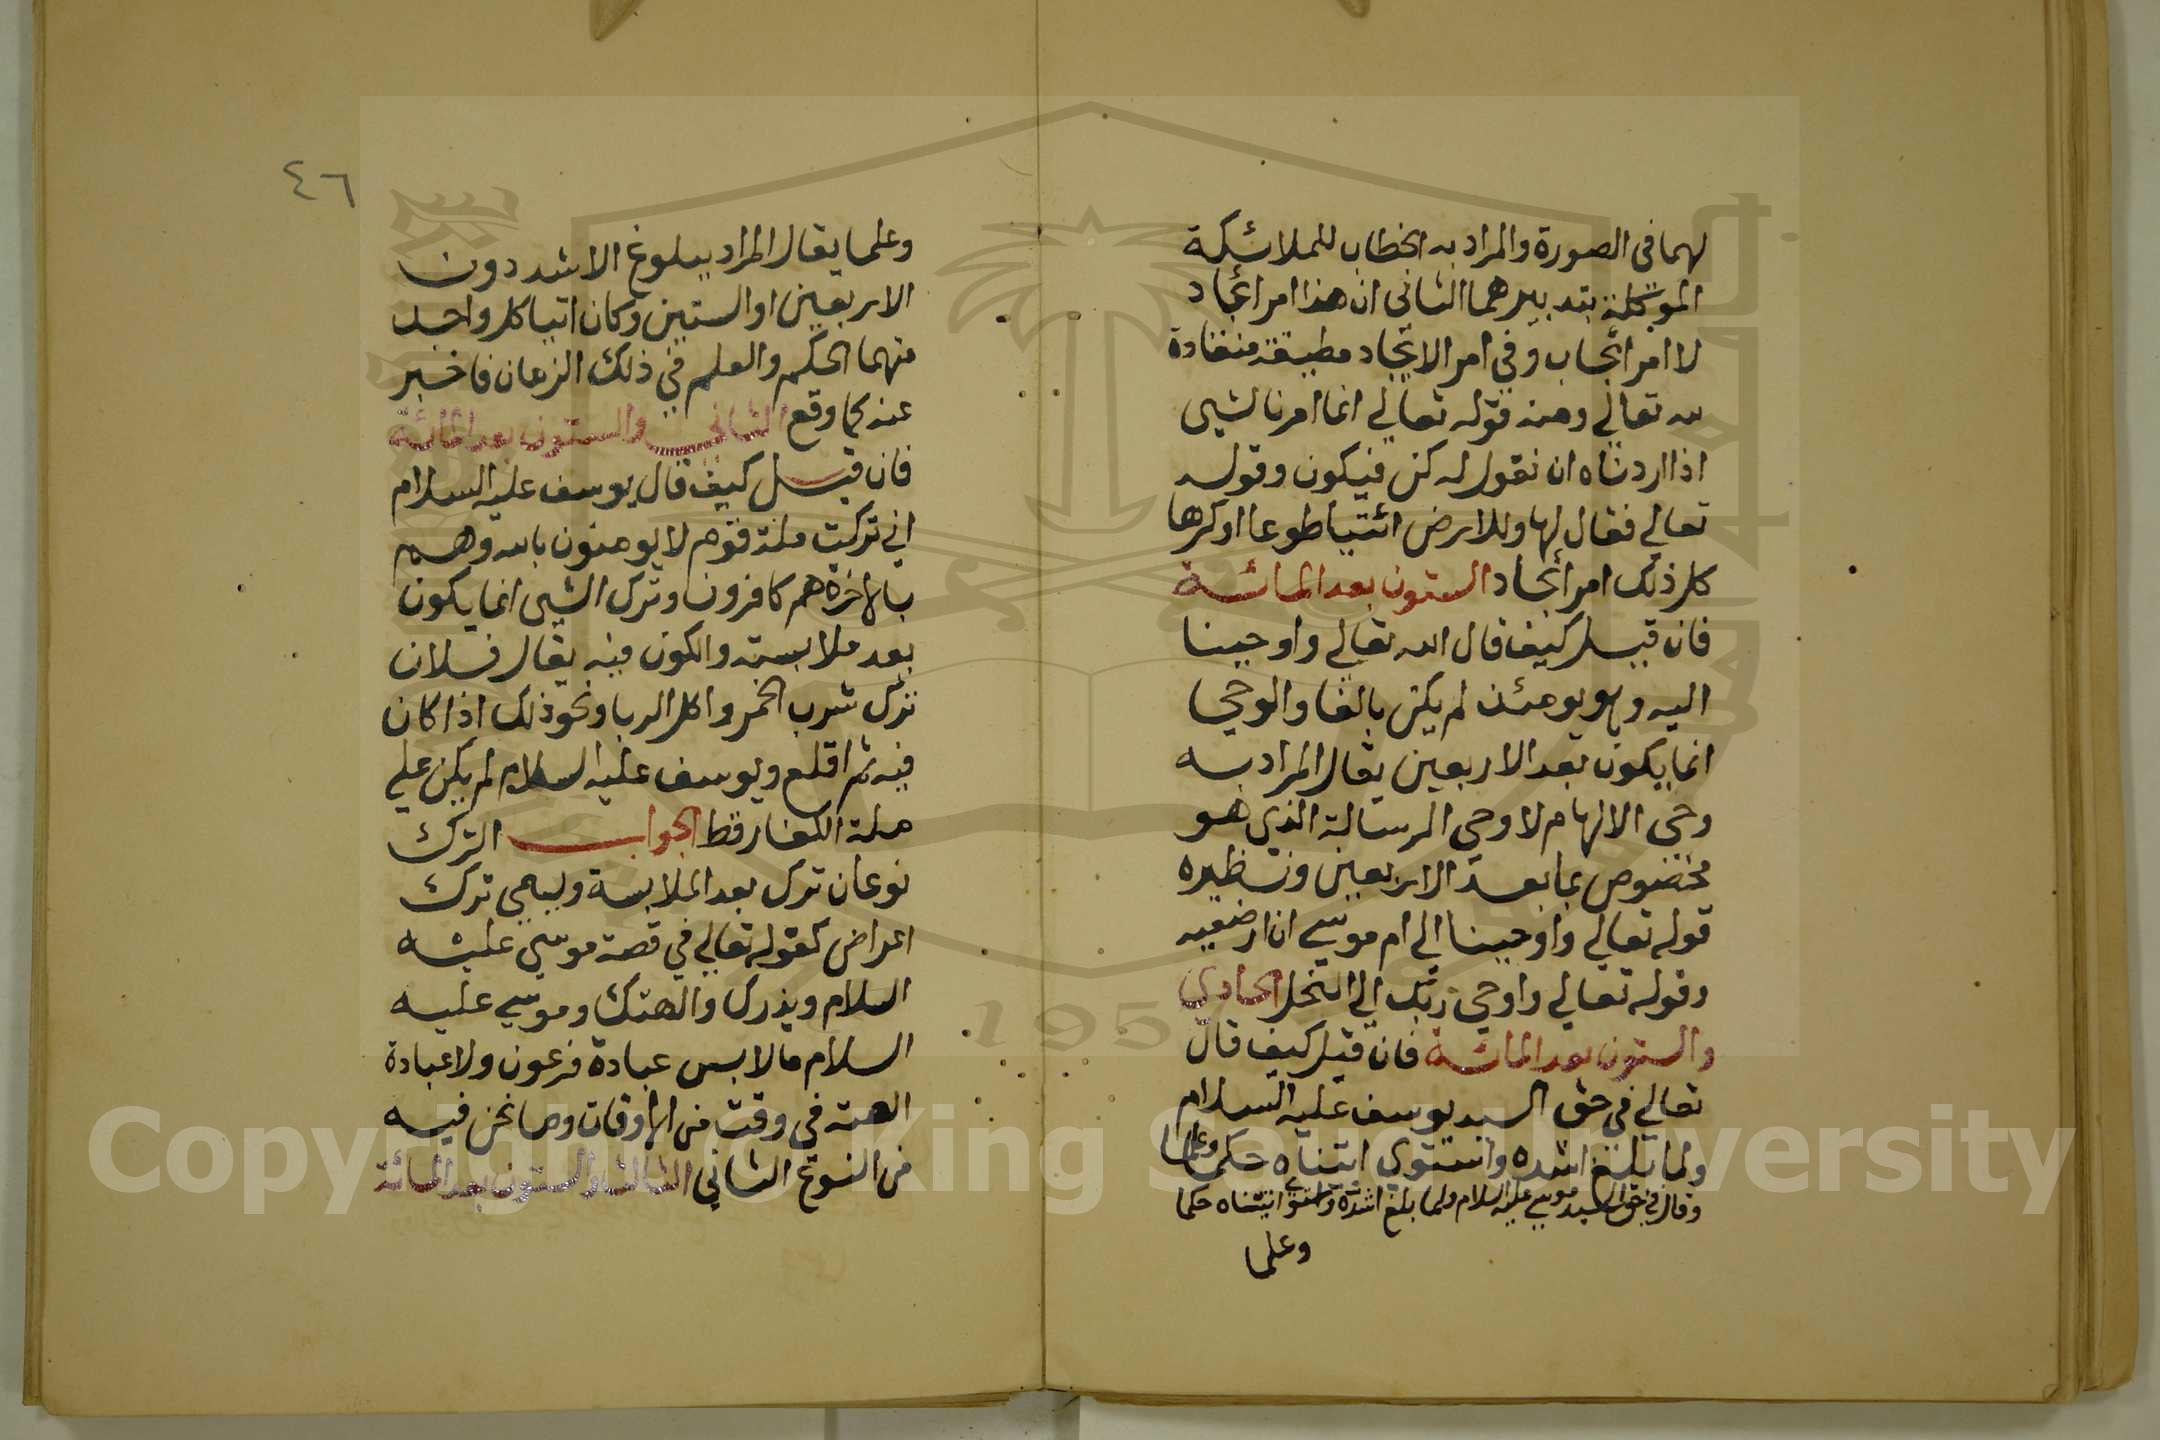 لهما في الصورة والمراد به الخطاب للملائكة
الموكلة بتدبيرهما الثاني ان هذا امر ايجاد
لا امر ايجاب وفي امر الايجاد مطيعة منقادة
لله تعالي ومنه قوله تعالي انما امرنا لشيى
اذا اردناه ان نقول له كن فيكون وقوله
تعالي فقال لها وللارض ائتيا طوعا اوكرها
كل ذلك امر ايجاد الستون بعد المائة
فان قيل كيف قال الله تعالي واوحينا
اليه وهو يومئذ لم يكن بالغا والوحي
انما يكون بعد الاربعين يقال المراد به
وحى الالهام لا وحي الرسالة الذي هو
مخصوص بما بعد الاربعين ونظيره
قوله تعالي واوحينا الي ام موسي ان ارضعيه
وقوله تعالي واوحي ربك الي النحل الحادي
والستون بعد المائة فان قيل كيف قال
تعالي في حق السيد يوسف عليه السلام
ولما بلغ اشده واستوي اتيناه حكما وعلما
وقال في حق السيد موسي عليه السلام ولما بلغ اشده واستوي اتيناه حكما
وعلما
٤٦
وعلما يقال المراد ببلوغ الاشد دون
الاربعين او الستين وكان اتيا كل واحد
منهما الحكم والعلم في ذلك الزمان فاخبر
عنه كما وقع الثاني والستون بعد المائة
فان قيل كيف قال يوسف عليه السلام
اني تركت ملة قوم لا يومنون بالله وهم
بالاخرة هم كافرون وترك الشيى انما يكون
بعد ملابسته والكون فيه يقال فلان
ترك شرب الخمر واكل الربا ونحو ذلك اذا كان
فيه ثم اقلع ويوسف عليه السلام لم يكن علي
ملة الكفار قط الجواب الترك
نوعان ترك بعد الملابسة ويسمي ترك
اعراض كقوله تعالي في قصة موسي عليه
السلام ويذرك والهتك وموسي عليه
السلام ما لابس عبادة فرعون ولا عبادة
الهته في وقت من الاوقات وما نحن فيه
من النوع الثاني الثالث والستون بعد المائة
1957
Copyright © King Saud University